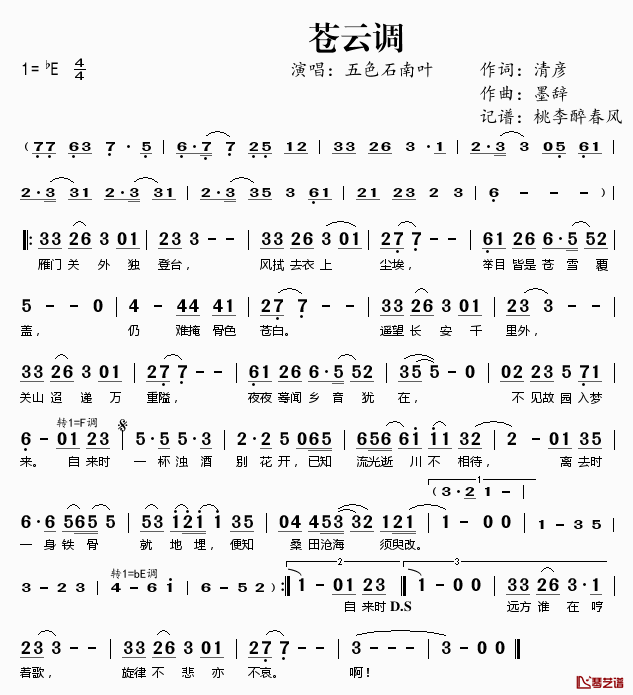 苍云调
1=♭E 4/4 演唱：五色石南叶 作词：清彦
作曲：墨辞
记谱：桃李醉春风
(77 63 7·5 | 6·7 7 25 12 | 33 26 3·1 | 2·3 3 05 61 |
2·3 31 2·3 31 | 2·3 35 3 61 | 21 23 2 3 | 6 - - - )
‖: 33 26 3 01 | 23 3 - - | 33 26 3 01 | 27 7 - - | 61 26 6·5 52
雁门关外独登台，风拭去衣上尘埃，举目皆是苍雪覆
5 - - 0 | 4 - 44 41 | 27 7 - - | 33 26 3 01 | 23 3 -
盖，仍难掩骨色苍白。遥望长安千里外，
33 26 3 01 | 27 7 - - | 61 26 6·5 52 | 35 5 - - | 02 23 5 71
关山迢递万重隘，夜夜蓦闻乡音犹在，不见故园入梦
转1=F调
6 - 01 23 | 5·5 5·3 | 2·2 5 065 | 656 61 11 32 | 2 - 01 35
来。自来时一杯浊酒别花开，已知流光逝川不相待，离去时
1
(3·2 1 - |
6·6 565 5 | 53 121 1 35 | 04 453 32 121 | 1 - 00 | 1 - 35 |
一身铁骨就地埋，便知桑田沧海须臾改。
转1=bE调 2 3
3 - 23 | 4 - 61 | 6 - 52 ) :‖ 1 - 01 23 :‖ 1 - 00 | 33 26 3·1
自来时 D.S 远方谁在哼
23 3 - - | 33 26 3 01 | 27 7 - - | 3 - - - | 3 - 00 ‖
着歌，旋律不悲亦不哀。啊！
琴艺谱